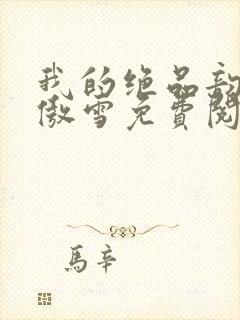 我的绝品
傲雪免费阅
馬辛